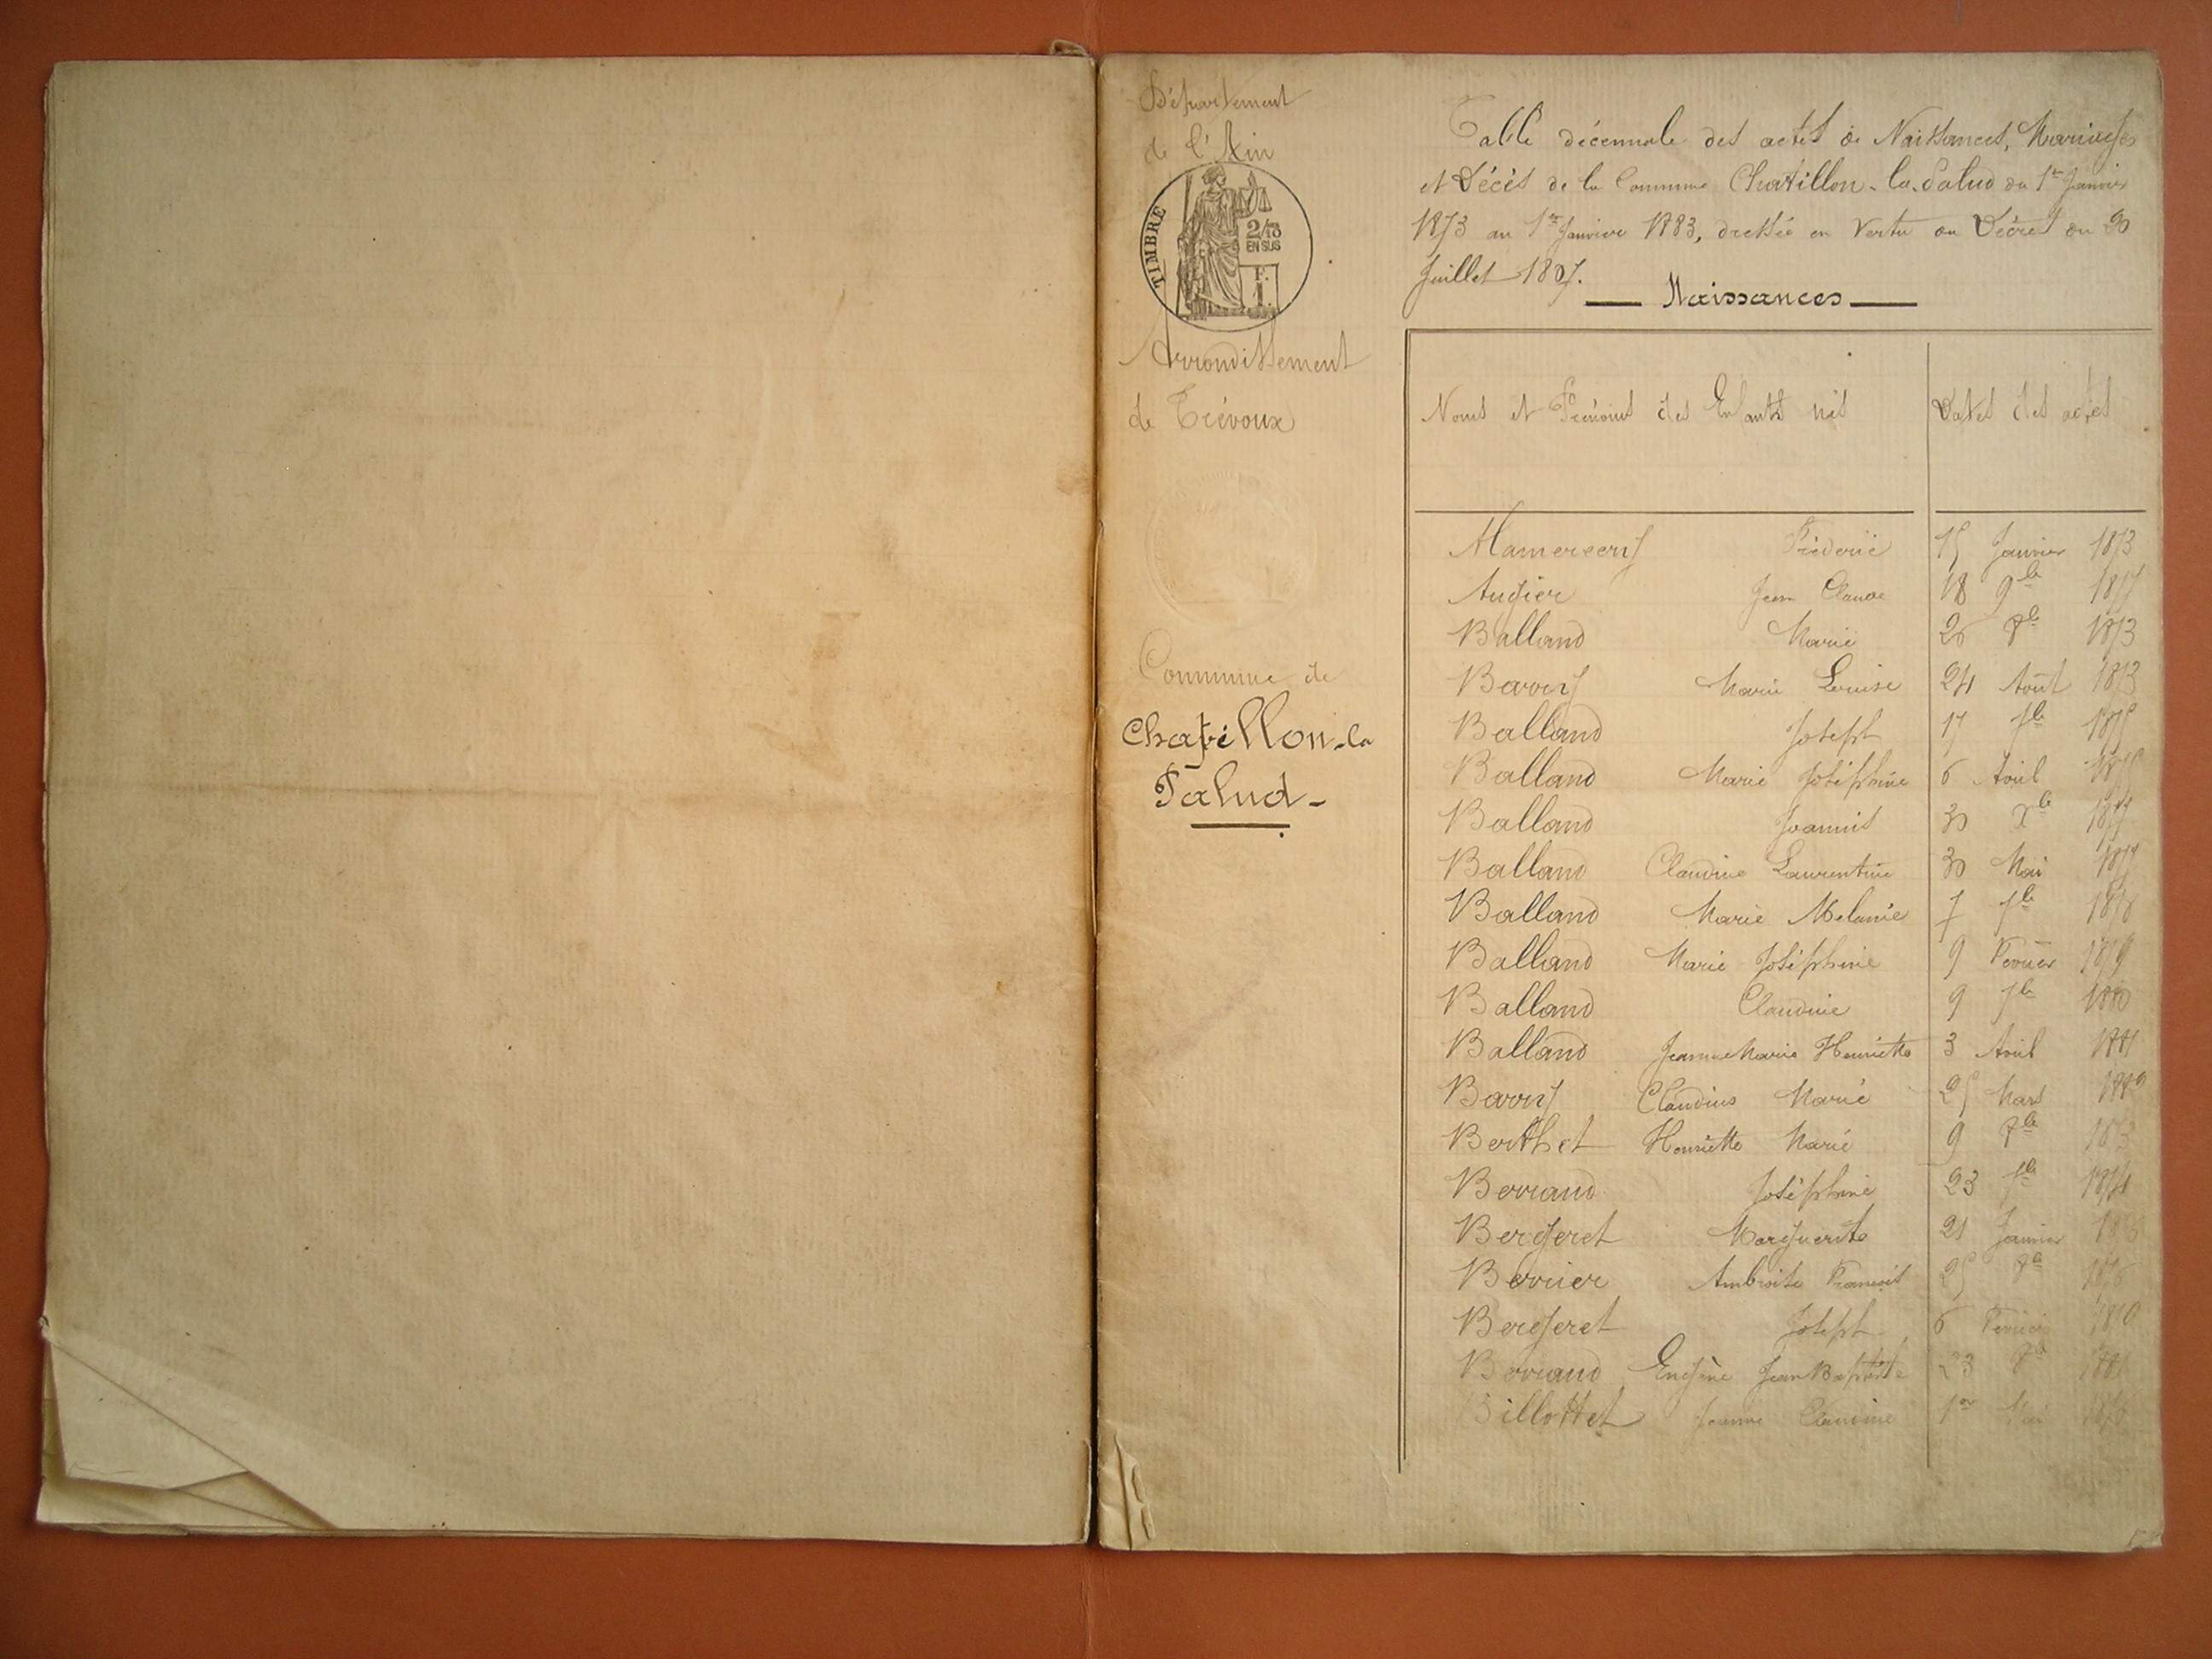 Département
de l'Ain
TIMBRE
2/10
EN SUS
F.
1.
Arrondissement
de Trévoux
Commune de
Chatillon-la
Palud-
Table décennale des actes de Naissances, Mariages
et Décès de la Commune Chatillon-la-Palud du 1er Janvier
1873 au 1er Janvier 1883, dressée en vertu du Décret du 20
Juillet 1807.
Naissances
Noms et Prénoms des Enfants nés Dates des actes
Frédéric 15 Janvier 1873
Augier Jean Claude 18 9bre 1877
Balland Marie 26 8bre 1873
Marie Louise 24 Août 1873
Balland Joseph 17 7bre 1875
Balland Marie Joséphine 6 Avril
Balland Joannis 30 Xbre
Balland Claudine Laurentine 30 Mai 1877
Balland Marie Mélanie 7 7bre 1878
Balland Marie Joséphine 9 Février 1879
Balland Claudine 9 7bre 1880
Balland Jeanne Marie Henriette 3 Avril 1881
Claudius Marie 25 Mars 1882
Berthet Henriette Marie 9 8bre 1873
Berraud Joséphine 23 7bre 1874
Bergeret Marguerite 21 Janvier
Berrier Ambroise François 25 1876
Bergeret Joseph 6 Février 1880
Berraud Eugène Jean Baptiste 23
Billottet Jeanne Claudine 1er Mai